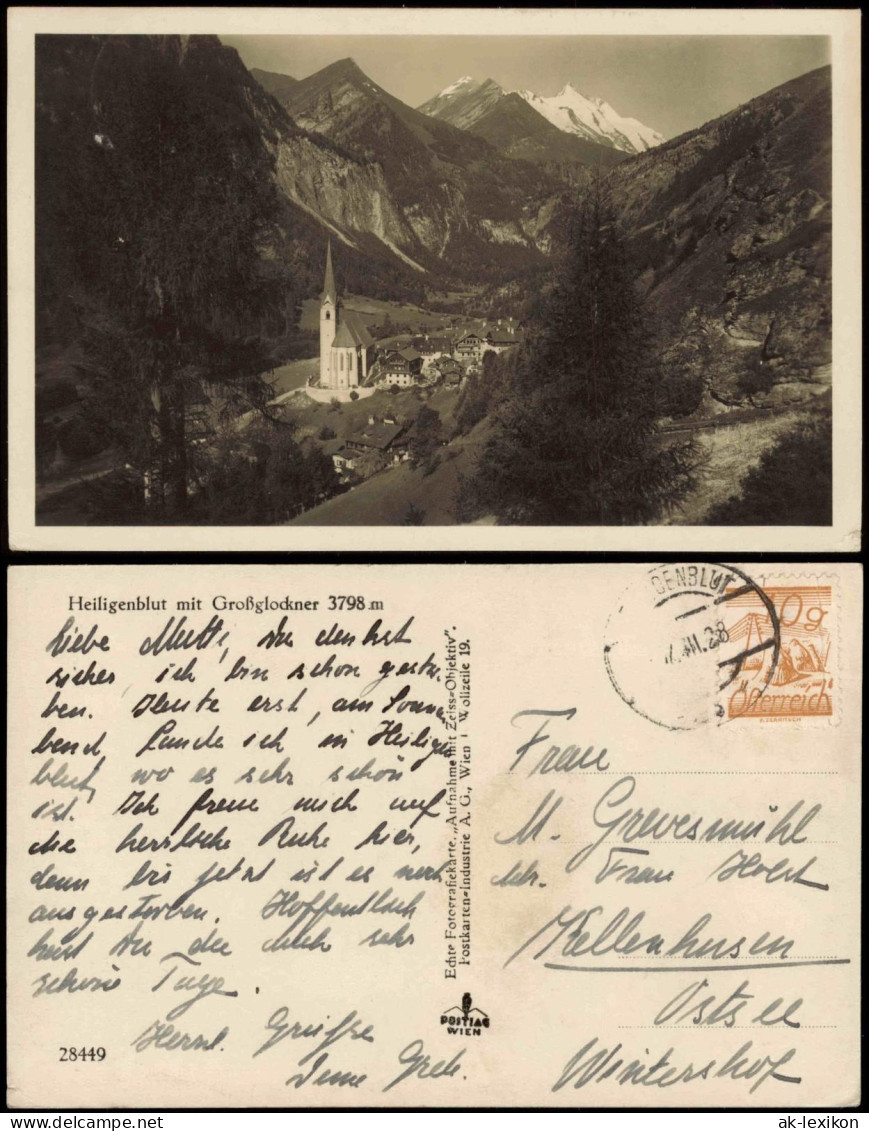 Heiligenblut mit Großglockner 3798 m
Liebe Mutti, Du denkst
sicher, ich bin schon gestor-
ben. Heute erst, am Sonna-
bend lande ich in Heiligen
blut, wo es sehr schön
ist. Ich freue mich auf
die herrliche Ruhe hier,
denn bis jetzt ist es noch
ausgestorben. Hoffentlich
hast Du die auch sehr
schöne Tage.
Herzl. Grüße
Deine Gret.
28449
Echte Fotografiekarte. „Aufnahme mit Zeiss=Objektiv".
Postkarten=Industrie A. G., Wien I Wollzeile 19.
POSTIAG
WIEN
GENBLUT
VII.28
10g
Österreich
Frau
M. Grevesmühl
adr. Frau Holst
Kellenhusen
Ostsee
Wintershof
www.ak-ansichtskarten.de
ak-lexikon